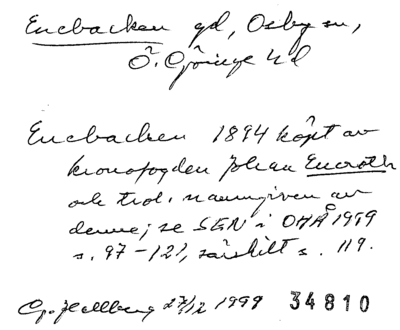 Enebacken gd, Osby sn,
Ö. Göinge hd
Enebacken 1894 köpt av
kronofogden Johan Eneroth
och trol. namngiven av
denne; se SGN i OHÅ 1999
s. 97-121, särskilt s. 119.
G. Hallberg 27/12 1999 34810